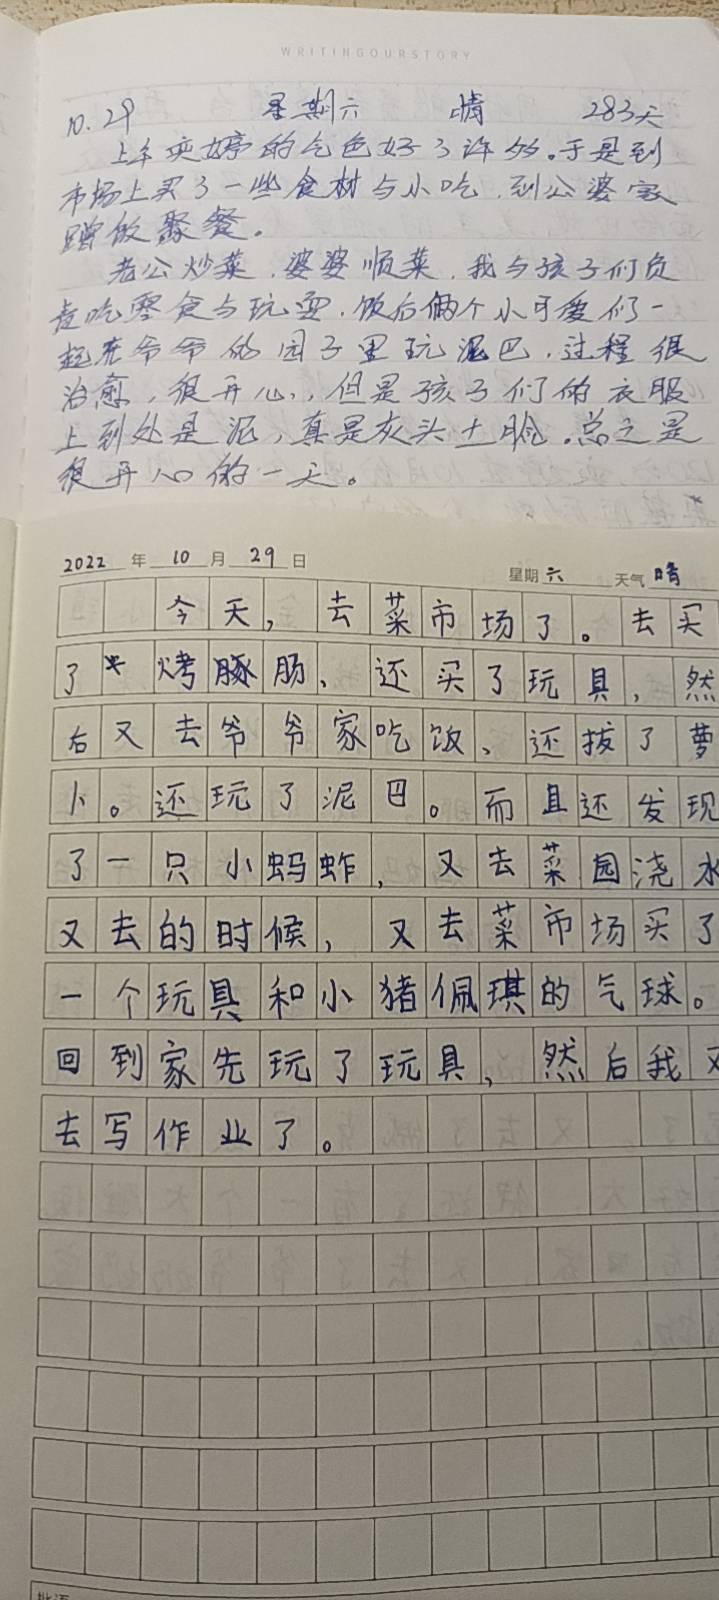 WRITINGOURSTORY
10.29 星期六 晴 283天
上午奕婷的气色好了许多。于是到
市场上买了一些食材与小吃,到公婆家
蹭饭聚餐。
老公炒菜,婆婆顺菜,我与孩子们负
责吃零食与玩耍,饭后俩个小可爱们一
起在爷爷的园子里玩泥巴,过程很
治愈,很开心,但是孩子们的衣服
上到处是泥,真是灰头土脸。总之是
很开心的一天。
2022年10月29日 星期六 天气晴
今天,去菜市场了。去买
了烤豚肠、还买了玩具,然
右又去爷爷家吃饭、还拔了萝
卜。还玩了泥巴。而且还发现
了一只小蚂蚱,又去菜园浇水
又去的时候,又去菜市场买了
一个玩具和小猪佩琪的气球。
回到家先玩了玩具,然后我又
去写作业了。